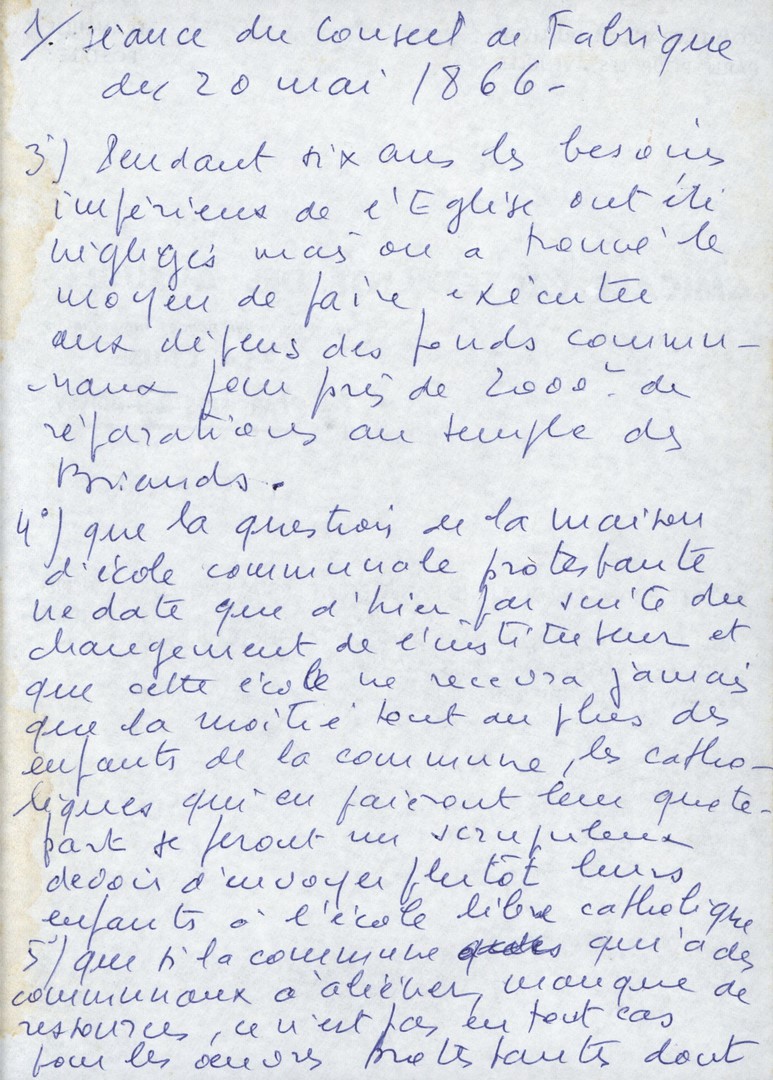 1/. séance du Conseil de Fabrique
du 20 mai 1866-
3°) Pendant six ans les besoins
impérieux de l'Eglise ont été
négligés mais on a trouvé le
moyen de faire exécuter
aux dépens des fonds commu-
-naux pour près de 2000 de
réparations au temple des
Briands.
4°) que la question de la maison
d'école communale protestante
ne date que d'hier par suite du
changement de l'instituteur et
que cette école ne recevra jamais
que la moitié tout au plus des
enfants de la commune, les catho-
liques qui en paieront leur quote-
part se feront un scrupuleux
devoir d'envoyer plutôt leurs
enfants à l'école libre catholique
5°) que si la commune qui a des
communaux à aliéner, manque de
ressources, ce n'est pas en tout cas
pour les œuvres protestantes dont